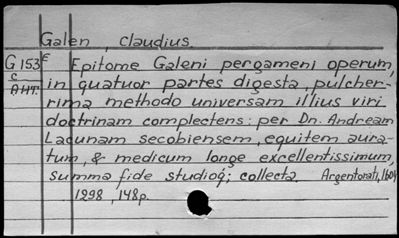 Galen, Claudius.
G 153 E Epitome Galeni pergameni operum,
C in quatuor partes digesta, pulcher-
AHT. rima methodo universam illius viri
doctrinam complectens: per Dn. Andream
Lacunam secobiensem, equitem aura-
tum, & medicum longe excellentissimum,
summa fide studioq; collecta. Argentorati, 1604
1298, 148p.